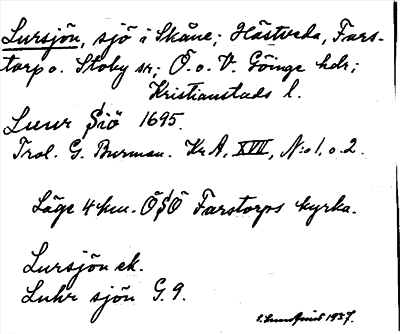 Lursjön, sjö i Skåne; Hästveda, Fars-
torp o. Stoby sn; Ö. o. V. Göinge hdr;
Kristianstads l.
Luur Siö 1695.
Trol. G. Burman. Kr A, XVII, N:o 1, o. 2.
Läge 4 km. ÖSÖ Farstorps kyrka.
Lursjön ek.
Luhr sjön G. 9.
1937.